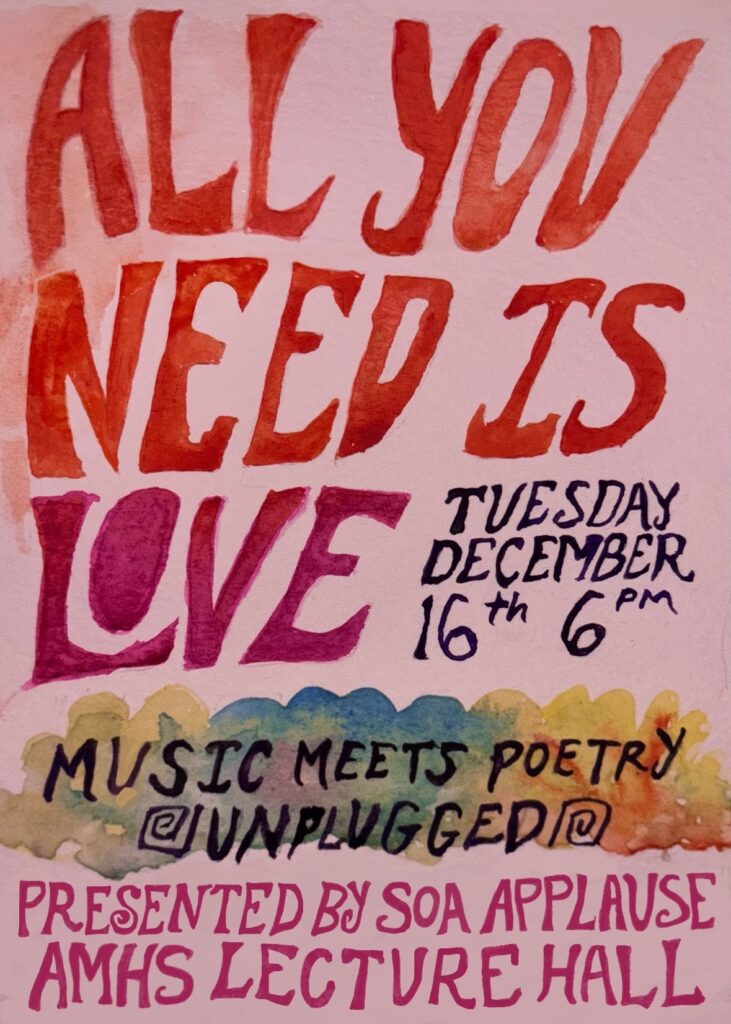 ALL YOU
NEED IS
LOVE
TUESDAY
DECEMBER
16th 6PM
MUSIC MEETS POETRY
UNPLUGGED
PRESENTED BY SOA APPLAUSE
AMHS LECTURE HALL